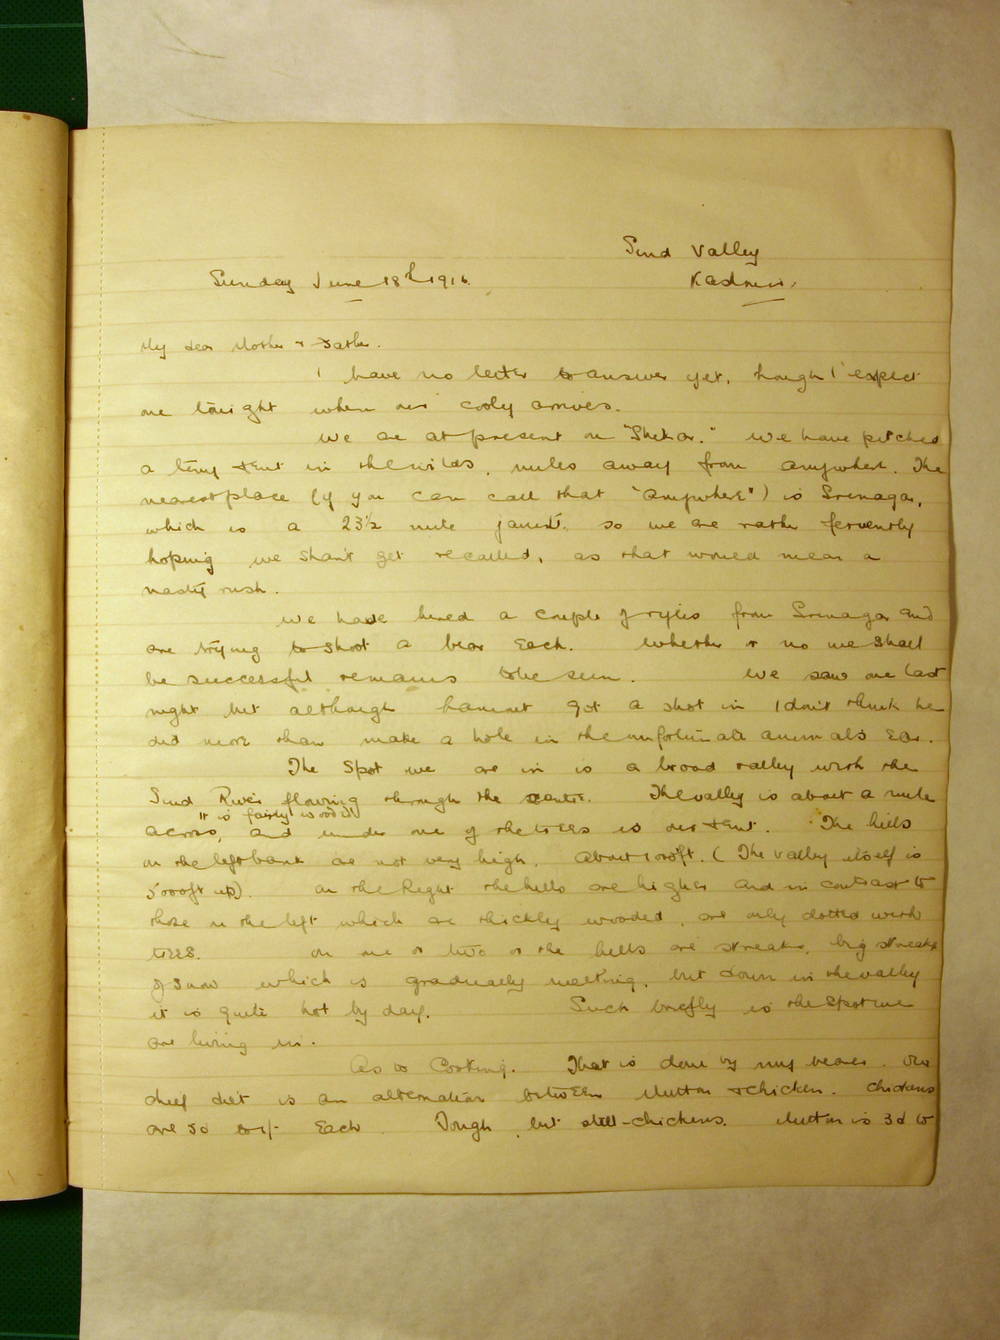 Sind Valley
Sunday June 18th 1916.
Kashmir.
My dear Mother & Father.
I have no letter to answer yet, though I expect
one tonight when our cooly arrives.
We are at present on "Shekar." We have pitched
a tiny tent in the wilds, miles away from anywhere. The
nearest place (if you can call that "anywhere") is Srinagar,
which is a 23½ mile jaunt. so we are rather fervently
hoping we shan't get recalled, as that would mean a
nasty rush.
We have hired a couple of rifles from Srinagar and
are trying to shoot a bear each. Whether or no we shall
be successful remains to be seen. We saw one last
night but although Hammet got a shot in I don't think he
did more than make a hole in the unfortunate animals ear.
The spot we are in is a broad valley with the
Sind River flowing through the centre. The valley is about a mile
It is fairly wooded
across, and under one of the trees is our tent. The hills
on the left bank are not very high. About 1000ft. (The valley itself is
5000ft up). On the Right the hills are higher and in contrast to
those on the left which are thickly wooded, are only dotted with
trees. On one or two of the hills are streaks, big streaks
of snow which is gradually melting, but down in the valley
it is quite hot by day. Such briefly is the spot we
are living in.
As to Cooking. That is done by my bearer. Our
chief diet is an alternation between Mutton & chicken. Chickens
are 5d to 1/- each. Tough, but still - chickens. Mutton is 3d to